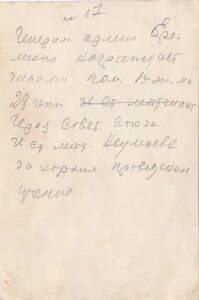 № 17
Генерал армии Ере-
менко награждает
часами ком.
23 гкп ~~и ст. лейтенант~~
Героя Совет. Союза
и ст. лейт. Наумова
за хорошо проведенн
учение.